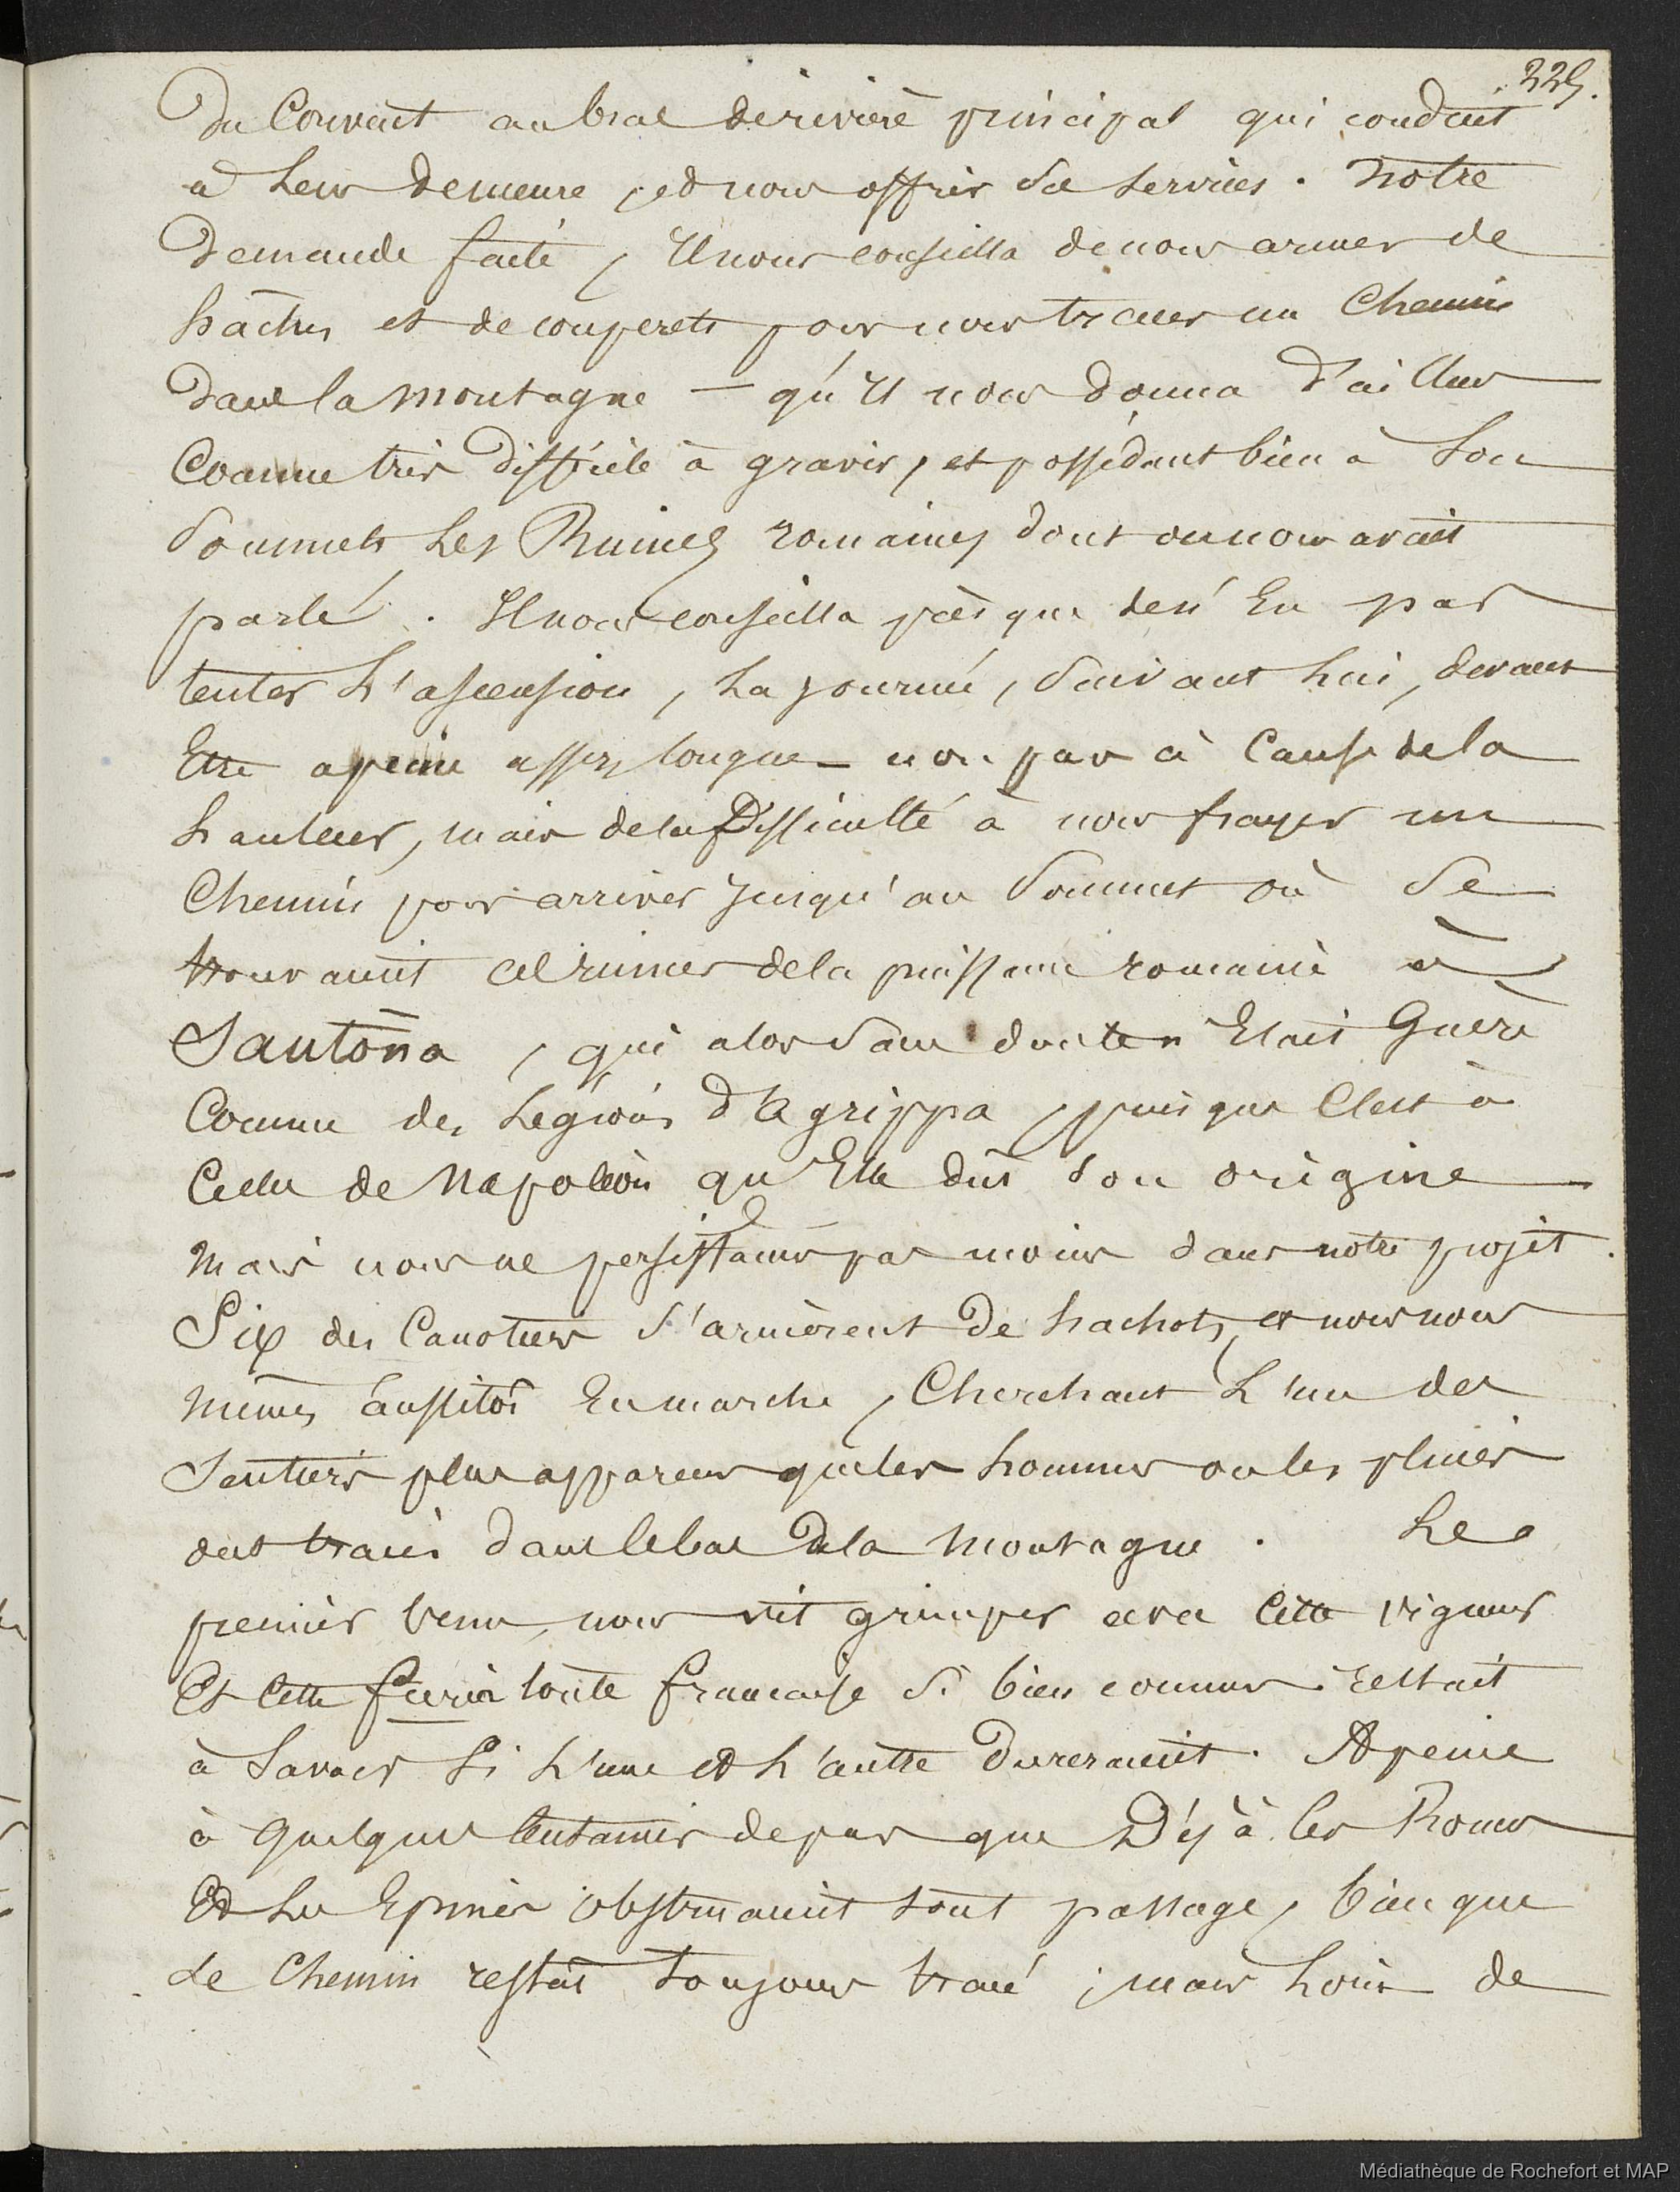 225.
Du Couvent au bras de rivière principal qui conduit
a Leur demeure, et nous offrir ses services. Notre
Demande faite, Il nous conseilla de nous armer de
hâches et de couperets pour nous tracer un Chemin
dans la montagne — qu'Il nous donna d'ailleurs
Comme très difficile à gravir, et possédant bien à Son
Sommet, Les Ruines romaines dont on nous avait
parlé. Il nous conseilla presque de n'En pas
tenter L'ascension, La journée, Suivant Lui, devant
Etre a peine assez longue — non pas à Cause de la
hauteur, mais de la Difficulté à nous frayer un
Chemin pour arriver jusqu'au Sommet où Se
trouvaient ces ruines de la puissance romaine à
Santoña, qui alors Sans doute n'Etait Guère
Connue des Légions d'Agrippa, puisque C'est à
Celles de Napoléon qu'Elle dut Son origine
mais nous ne persistames pas moins dans notre projet.
Six des Canotiers S'armèrent de hachots, et nous nous
mimes aussitôt En marche, Cherchant L'un des
Sentiers plus apparens que les hommes ou les pluies
ont tracés dans le bas de la montagne. Le
premier venu, nous vit grimper avec cette vigueur
Et Cette furia toute française Si bien connue. restait
à Savoir Si L'une et L'autre dureraient. A peine
à quelques centaines de pas que Déjà les Ronces
Et Les Epines obstruaient tout passage, bien que
le Chemin restât toujours tracé ; mais Loin de
Médiathèque de Rochefort et MAP